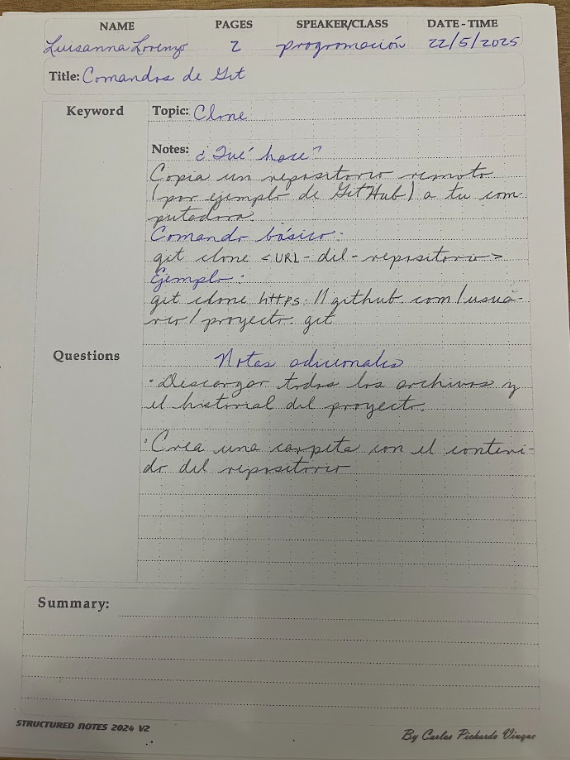 NAME PAGES SPEAKER/CLASS DATE - TIME
Luisanna Lorenzo 2 programación 22/5/2025
Title: Comandos de Git
Keyword
Topic: Clone
Notes: ¿Qué hace?
Copia un repositorio remoto
(por ejemplo de GitHub) a tu com-
putadora.
Comando básico:
get clone <URL-del-repositorio>
Ejemplo:
get clone https://github.com/usua-
rio/proyecto.git
Questions
Notas adicionales
·Descargar todos los archivos y
el historial del proyecto.
·Crea una carpeta con el conteni-
do del repositorio
Summary:
STRUCTURED NOTES 2024 V2
By Carlos Pichardo Vinque